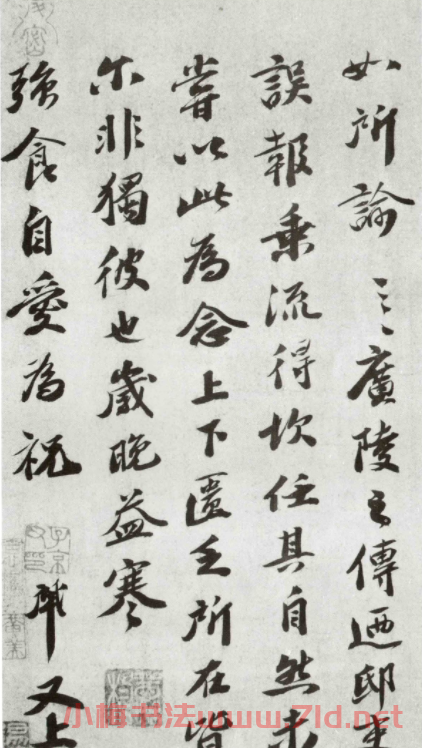 如所諭云〻廣陵之傳迺邸吏
誤報乘流得坎任其自然未
嘗以此為念上下匱乏所在皆
尔非獨彼也歲晚益寒
強食自愛為祝 軾又上
子京父印
小梅书法www.7ld.net